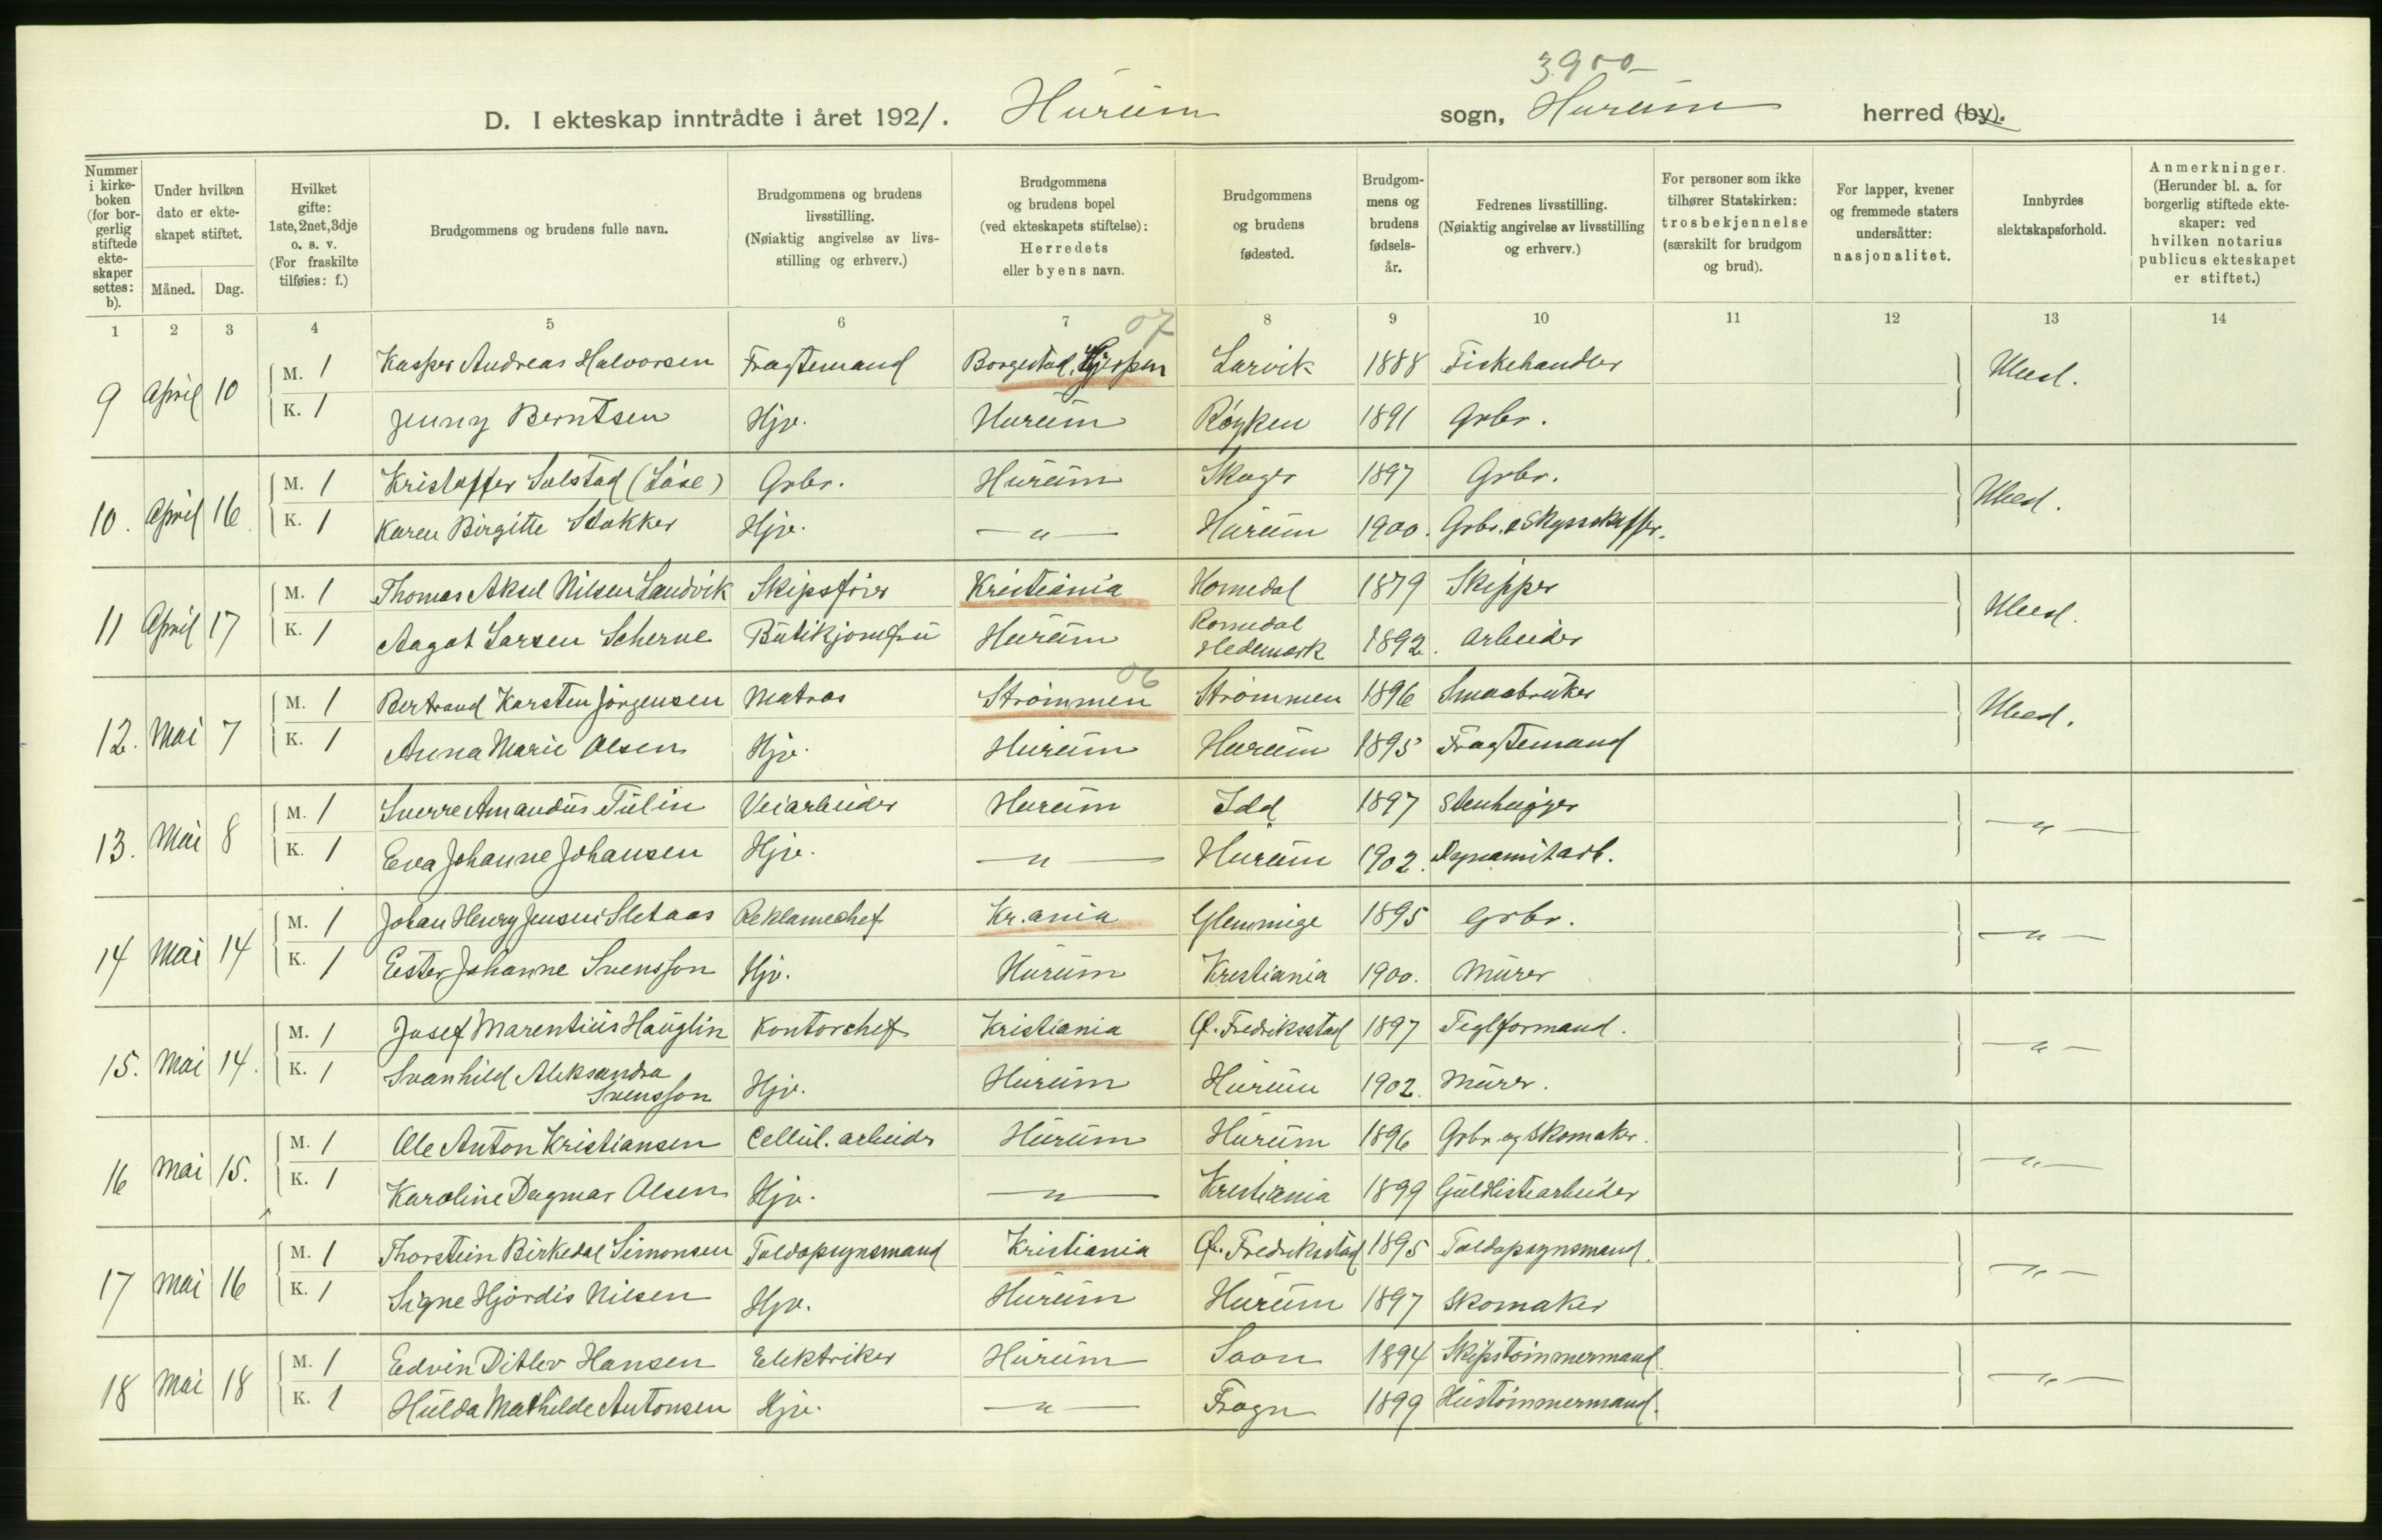 3900
D. I ekteskap inntrådte i året 1921. Hurum sogn, Hurum herred (by).
Nummer i kirkeboken (for borgerlig stiftede ekteskaper settes: b).
Under hvilken dato er ekteskapet stiftet.
Måned. Dag.
Hvilket gifte: 1ste, 2net, 3dje o. s. v. (For fraskilte tilføies: f.)
Brudgommens og brudens fulle navn.
Brudgommens og brudens livsstilling. (Nøiaktig angivelse av livsstilling og erhverv.)
Brudgommens og brudens bopel (ved ekteskapets stiftelse): Herredets eller byens navn.
Brudgommens og brudens fødested.
Brudgommens og brudens fødselsår.
Fedrenes livsstilling. (Nøiaktig angivelse av livsstilling og erhverv.)
For personer som ikke tilhører Statskirken: trosbekjennelse (særskilt for brudgom og brud).
For lapper, kvener og fremmede staters undersåtter: nasjonalitet.
Innbyrdes slektskapsforhold.
Anmerkninger. (Herunder bl. a. for borgerlig stiftede ekteskaper: ved hvilken notarius publicus ekteskapet er stiftet.)
1 2 3 4 5 6 7 8 9 10 11 12 13 14
07
9 April 10 M. 1 Kasper Andreas Halvorsen Fragtemand Borgestad, Gjerpen Larvik 1888 Fiskehandler Ubesl.
K. 1 Jenny Berntsen Hjv. Hurum Røyken 1891 Grbr.
10. April 16 M. 1 Kristoffer Solstad Grbr. Hurum Skoger 1897 Grbr. Ubesl.
K. 1 Karen Birgitte Stokker Hjv. — " — Hurum 1900. Grbr. o Skysskaffer.
11 April 17 M. 1 Thomas Aksel Nilsen Landvik Skipsfører Kristiania Homedal 1879 Skipper Ubesl.
K. 1 Aagot Larsen Scherve Butikjomfru Hurum Romedal Hedemark 1892. Arbeider
06
12. Mai 7 M. 1 Bertrand Karsten Jørgensen Matros Strømmen Strømmen 1896 Smaabruker Ubesl.
K. 1 Anna Marie Olsen Hjv. Hurum Hurum 1895 Fragtemand
13. Mai 8 M. 1 Sverre Amandus Tulin Veiarbeider Hurum Idd 1897 Stenhugger — " —
K. 1 Eva Johanne Johansen Hjv. — " — Hurum 1902. Dynamitarb.
14 Mai 14 M. 1 Johan Henry Jensen Sletaas Reklamechef Kr.ania Glemmige 1895 Grbr. — " —
K. 1 Ester Johanne Svensson Hjv. Hurum Kristiania 1900. Murer
15. Mai 14. M. 1 Josef Marentius Hauglin Kontorchef Kristiania Ø. Fredriksstad 1897 Teglformand. — " —
K. 1 Svanhild Aleksandra Svensson Hjv. Hurum Hurum 1902. Murer.
16 Mai 15. M. 1 Ole Anton Kristiansen Cellul. arbeider Hurum Hurum 1896 Grbr og Skomaker. — " —
K. 1 Karoline Dagmar Olsen Hjv. — " — Kristiania 1899 Guldlistearbeider
17 Mai 16 M. 1 Thorstein Birkedal Simonsen Toldopsynsmand Kristiania Ø. Fredriksstad 1895 Toldopsynsmand. — " —
K. 1 Signe Hjørdis Nilsen Hjv. Hurum Hurum 1897 Skomaker
18 Mai 18 M. 1 Edvin Ditlev Hansen Elektriker Hurum Soon 1894 Skipstømmermand. — " —
K. 1 Hulda Mathilde Antonsen Hjv. — " — Frogn 1899 Hustømmermand.